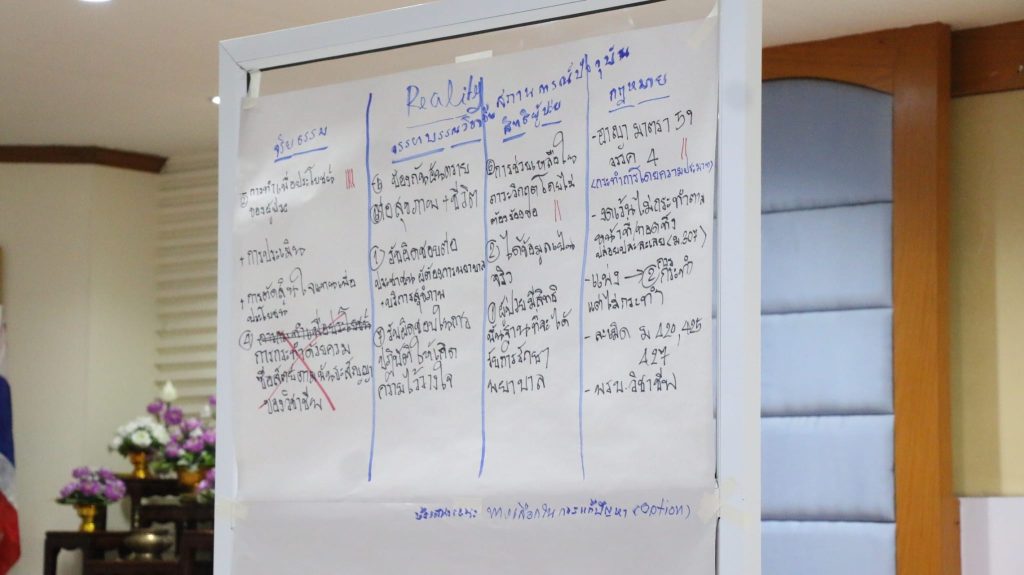 Reality สถานการณ์ปัจจุบัน
จริยธรรม
การทำเพื่อประโยชน์
ของผู้ป่วย
+ การประเมิน
+ การตัดสินใจแทนเพื่อ
ประโยชน์
④
การกระทำด้วยความ
ซื่อสัตย์ตามพันธะสัญญา
ของวิชาชีพ
จรรยาบรรณวิชาชีพ
ป้องกันอันตราย
ต่อสุขภาพ + ชีวิต
① รับผิดชอบต่อ
ประชาชน ผู้ต้องการพยาบาล
+ บริการสุขภาพ
รับผิดชอบในการ
ปฏิบัติให้เกิด
ความไว้วางใจ
สิทธิผู้ป่วย
การช่วยเหลือใน
ภาวะวิกฤตโดยไม่
ต้องร้องขอ
② ได้ข้อมูลเป็น
จริง
① ผู้ป่วยมีสิทธิ
พื้นฐาน + ที่จะได้
รับการรักษา
พยาบาล
กฎหมาย
- อาญา มาตรา 59
วรรค 4
(กระทำการโดยความประมาท)
- งดเว้นไม่กระทำตาม
หน้าที่ ทอดทิ้ง
ปล่อยปละละเลย (ม.307)
- แพ่ง → ควรกระทำ
แต่ไม่กระทำ
- ละเมิด ม 420, 425
427
- พรบ. วิชาชีพ
ทางเลือกในการแก้ปัญหา (option)